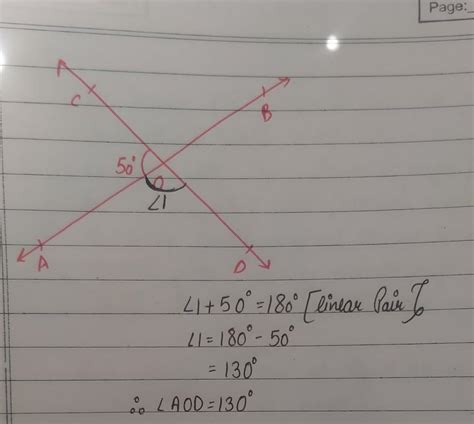 Page:
C
B
50°
O
∠1
A
D
∠1 + 50° = 180° [linear Pair]
∠1 = 180° - 50°
= 130°
∴ ∠AOD = 130°